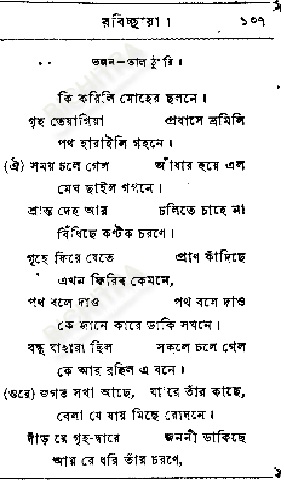 রবিচ্ছায়া। ১০৭
ভজন—তাল ঠুংরি।
কি করিলি মোহের ছলনে।
গৃহ তেয়াগিয়া প্রবাসে ভ্রমিলি
পথ হারাইলি গহনে।
(ঐ) সময় চলে গেল আঁধার হয়ে এল
মেঘ ছাইল গগনে।
শ্রান্ত দেহ আর চলিতে চাহে না
বিঁধিছে কণ্টক চরণে।
গৃহে ফিরে যেতে প্রাণ কাঁদিছে
এখন ফিরিব কেমনে,
পথ বলে দাও পথ বলে দাও
কে জানে কারে ডাকি সঘনে।
বন্ধু যাহারা ছিল সকলে চলে গেল
কে আর রহিল এ বনে।
(ওরে) জগত সখা আছে, যা রে তাঁর কাছে,
বেলা যে যায় মিছে রোদনে।
দাঁড়ায়ে গৃহ-দ্বারে জননী ডাকিছে
আয় রে ধরি তাঁর চরণে,